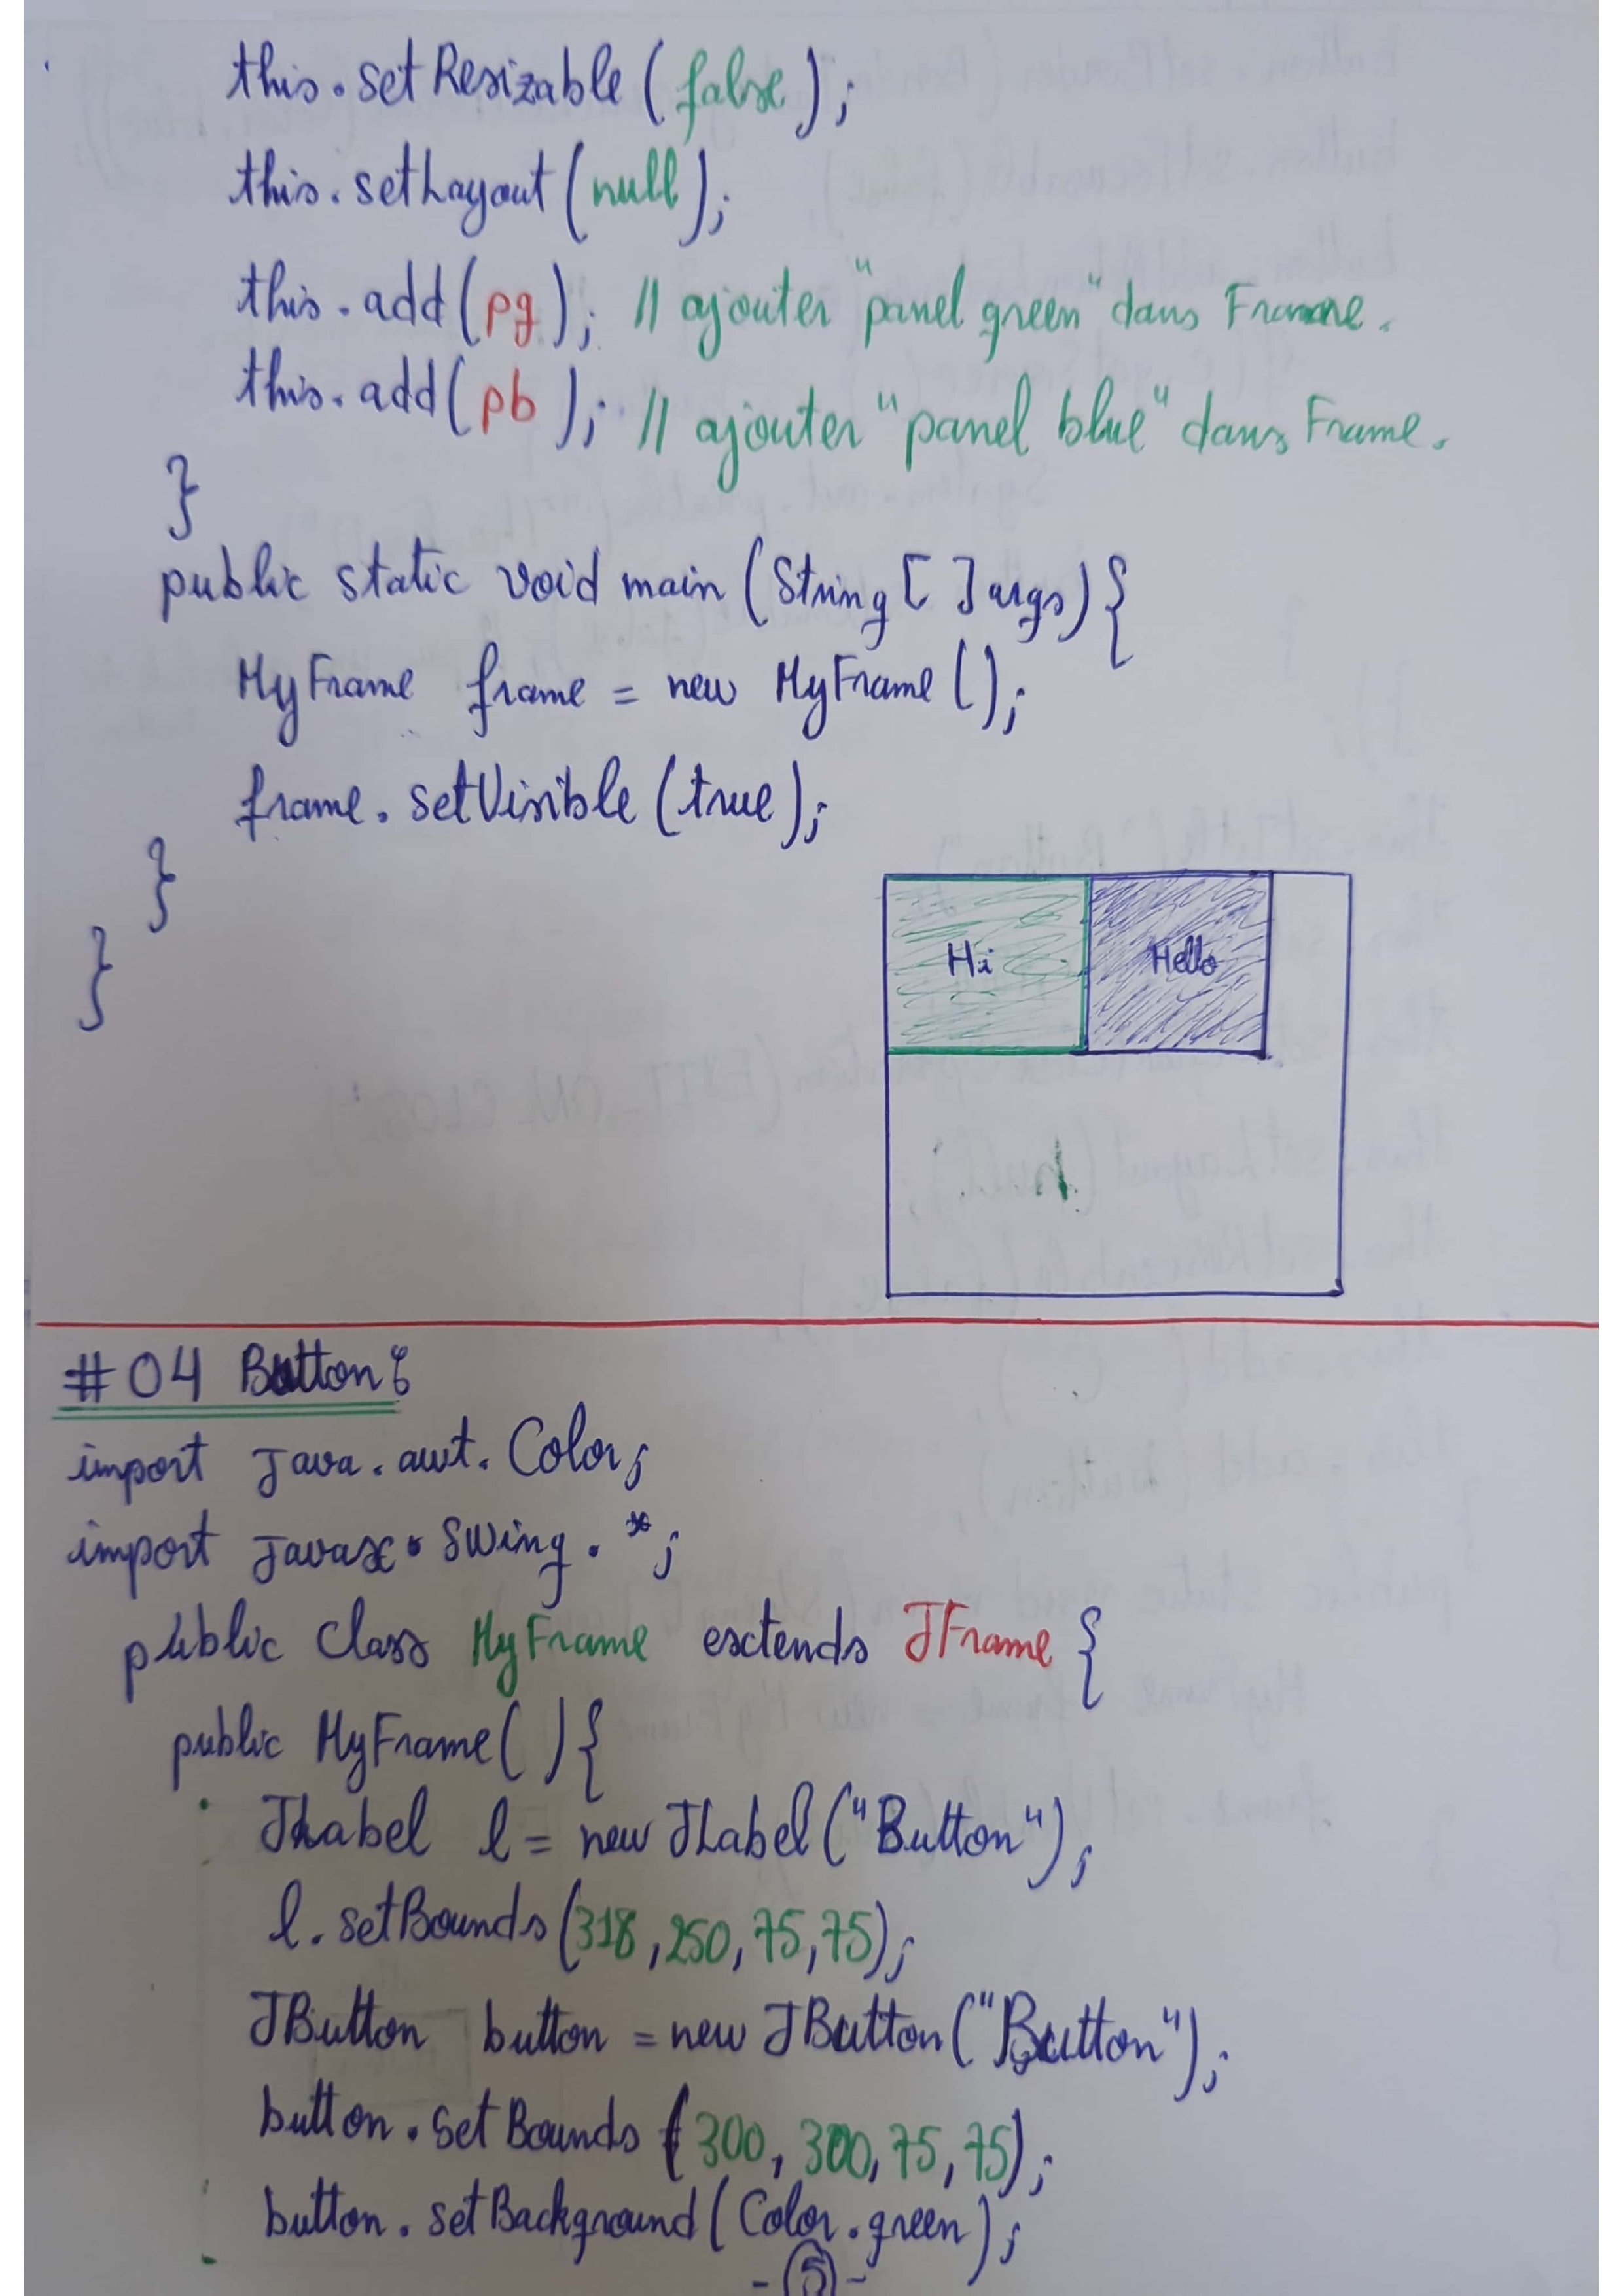 this.setResizable(false);
this.setLayout(null);
this.add(pg); // ajouter "panel green" dans Framone.
this.add(pb); // ajouter "panel blue" dans Frame.
}
public static void main (String [ ] args){
MyFrame frame = new MyFrame();
frame.setVisible(true);
}
}
Hi Hello
#04 Button:
import Java.awt.Color;
import Javax.Swing.*;
public Class MyFrame extends JFrame {
public MyFrame( ){
JLabel l = new JLabel("Button");
l.setBounds(318,250,75,75);
JButton button = new JButton("Button");
button.setBounds(300, 300, 75, 75);
button.setBackground(Color.green);
-5-